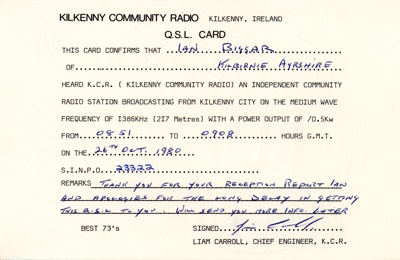 KILKENNY COMMUNITY RADIO KILKENNY, IRELAND
Q.S.L. CARD
THIS CARD CONFIRMS THAT IAN BIGGAR
OF KILBIRNIE AYRSHIRE
HEARD K.C.R. ( KILKENNY COMMUNITY RADIO) AN INDEPENDENT COMMUNITY
RADIO STATION BROADCASTING FROM KILKENNY CITY ON THE MEDIUM WAVE
FREQUENCY OF I366KHz (2I7 Metres) WITH A POWER OUTPUT OF /0.5Kw
FROM 0851 TO 0908 HOURS G.M.T.
ON THE 26TH OCT. 1980
S.I.N.P.O. 23322
REMARKS THANK YOU FOR YOUR RECEPTION REPORT IAN
AND APOLOGIES FOR THE LONG DELAY IN GETTING
THIS Q.S.L TO YOU. WILL SEND YOU MORE INFO. LATER
BEST 73's SIGNED
LIAM CARROLL, CHIEF ENGINEER, K.C.R.